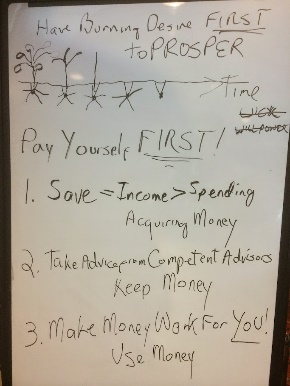 Have Burning Desire FIRST
to PROSPER
Time
LUCK
WILLPOWER
Pay Yourself FIRST!
1. Save = Income > Spending
Acquiring Money
2. Take Advice from Competent Advisors
Keep Money
3. Make Money Work For You!
Use Money